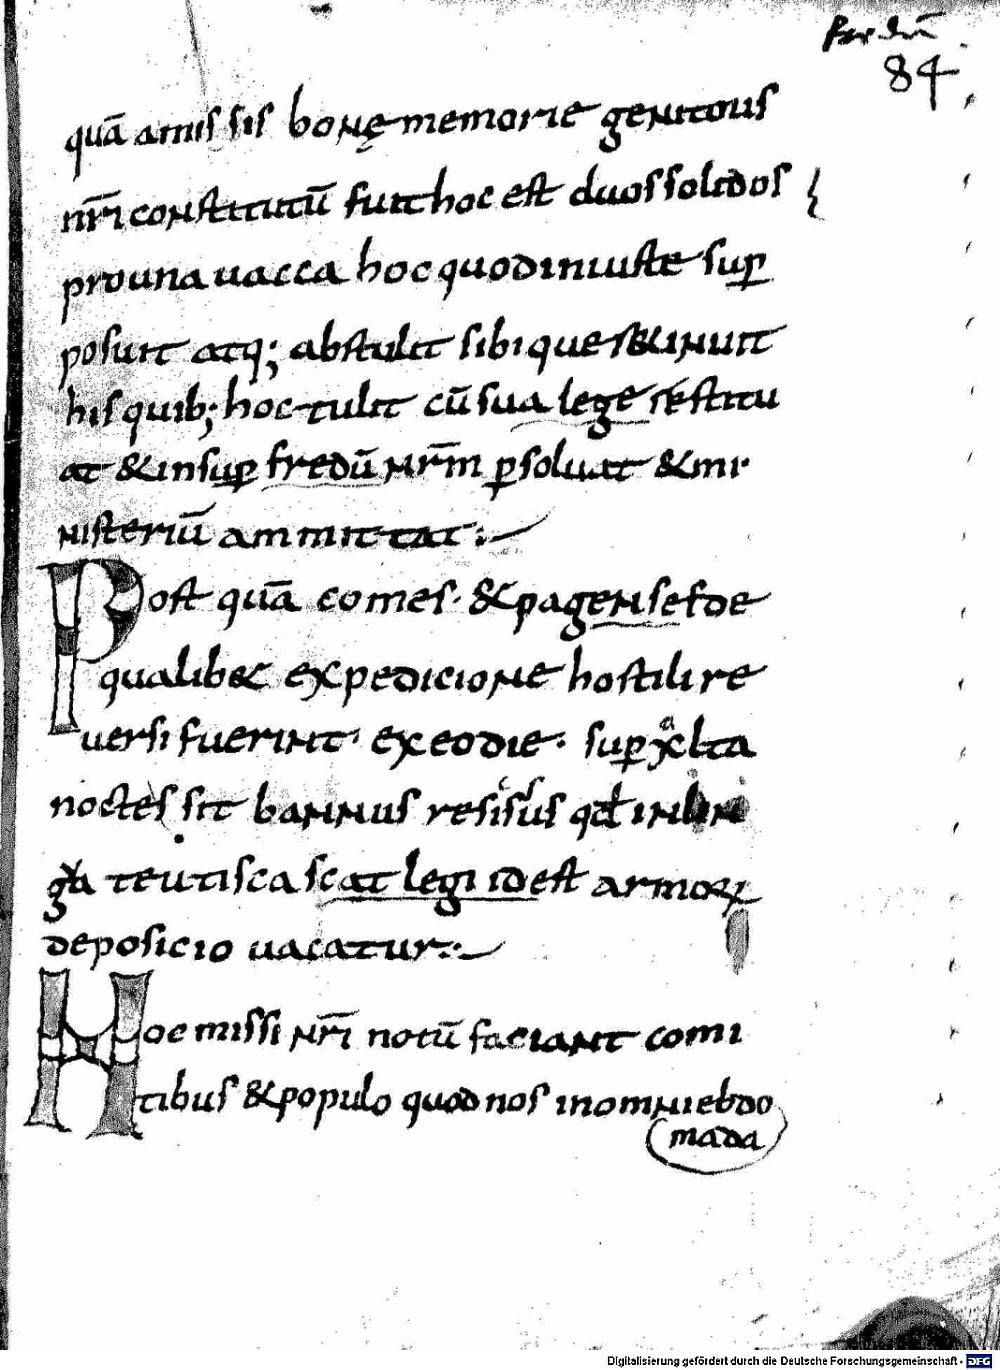 fredū
84
quā a missis bonę memorie genitoris
nr̄i constitutū fuit hoc est duos solidos
pro una uacca hoc quod iniuste sup̱
posuit atq; abstulit sibi que retinuit
his quib; hoc tulit cū sua lege restitu
at & insup̱ fredū nr̄m p̱soluat & mi
nisteriū ammittat :
Post quā comes · & pagenses de
qualibet expedicione hostili re
uersi fuerint · ex eo die · sup̱ xlta
noctes sit bannus resisus qđ in lin
gua teutisca scatlegi id est armoꝝ
deposicio uacatur :
Hoc missi nr̄i notū faciant comi
tibus & populo quod nos in omni ebdo
mada
Digitalisierung gefördert durch die Deutsche Forschungsgemeinschaft - DFG